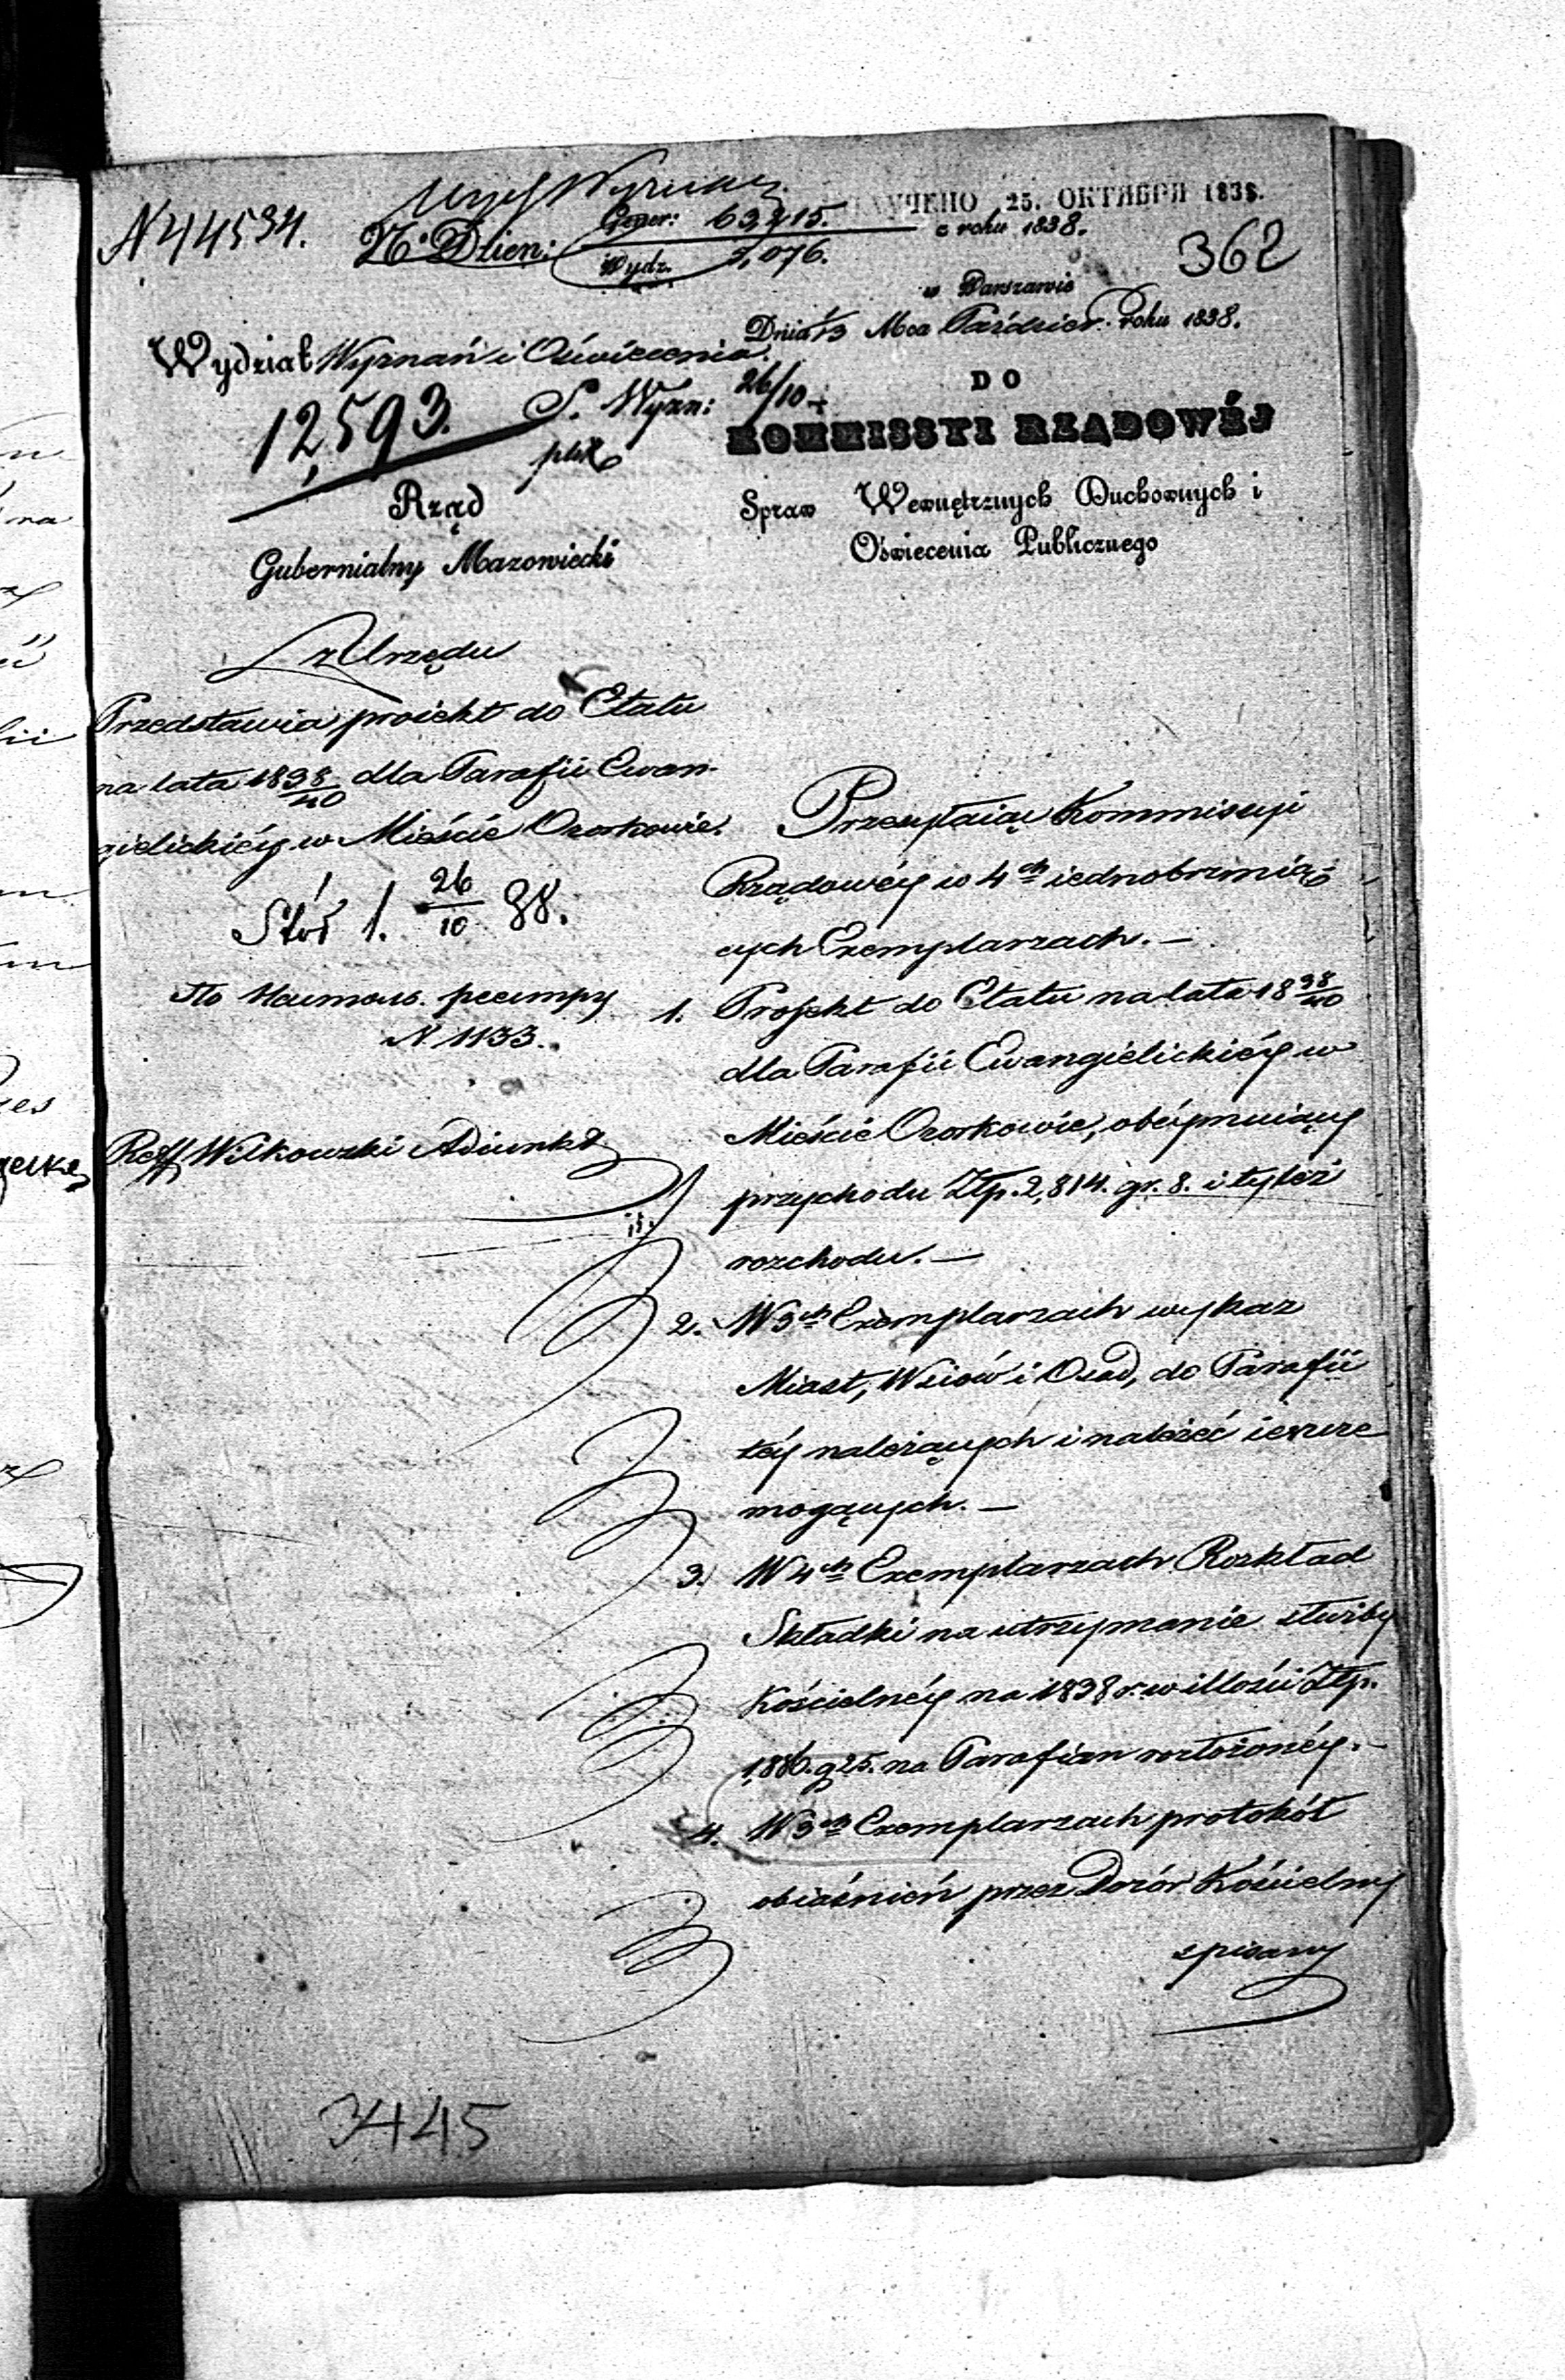 N 44534.
N. Dzien: Gener: 63,415.
Wydz. 2,076.
ПОЛУЧЕНО 25. ОКТЯБРЯ 1838.
z roku 1838.
362
w Warszawie
Dnia 1/13 Mca Paździer. roku 1838.
Wydział Wyznań i Oświecenia.
12,593. S. Wyzn: 26/10
Rząd
Gubernialny Mazowiecki
DO
KOMMISSYI RZĄDOWÉJ
Spraw Wewnętrznych Duchownych i
Oświecenia Publicznego
z Urzędu
Przedstawia proiekt do Etatu
na lata 1838/40 dla Parafii Ewan-
gielickiéy w Mieście Ozorkowie.
Stół 1. 26/10 38.
N 1133.
Reff Wilkowski Adiunkt
Przesyłaiąc Kommissyi
Rządowéy w 4ch iednobrzmią-
cych Exemplarzach. —
1. Projekt do Etatu na lata 1838/40
dla Parafii Ewangielickiéy w
Mieście Ozorkowie, obéymuiący
przychodu Złp. 2,814. gr. 8. i tyleż
rozchodu. —
2. W 3ch Exemplarzach wykaz
Miast, Wsiów i Osad, do Parafii
téy należących i należéć ieszcze
mogących. —
3. W 4ch Exemplarzach Rozkład
Składki na utrzymanie służby
Kościelnéy na 1838 r. w illości Złp.
1,886. g 25. na Parafian rozłożonéy. —
4. W 3ch Exemplarzach protokół
obiaśnień przez Dozór Kościelny
spisany
3445